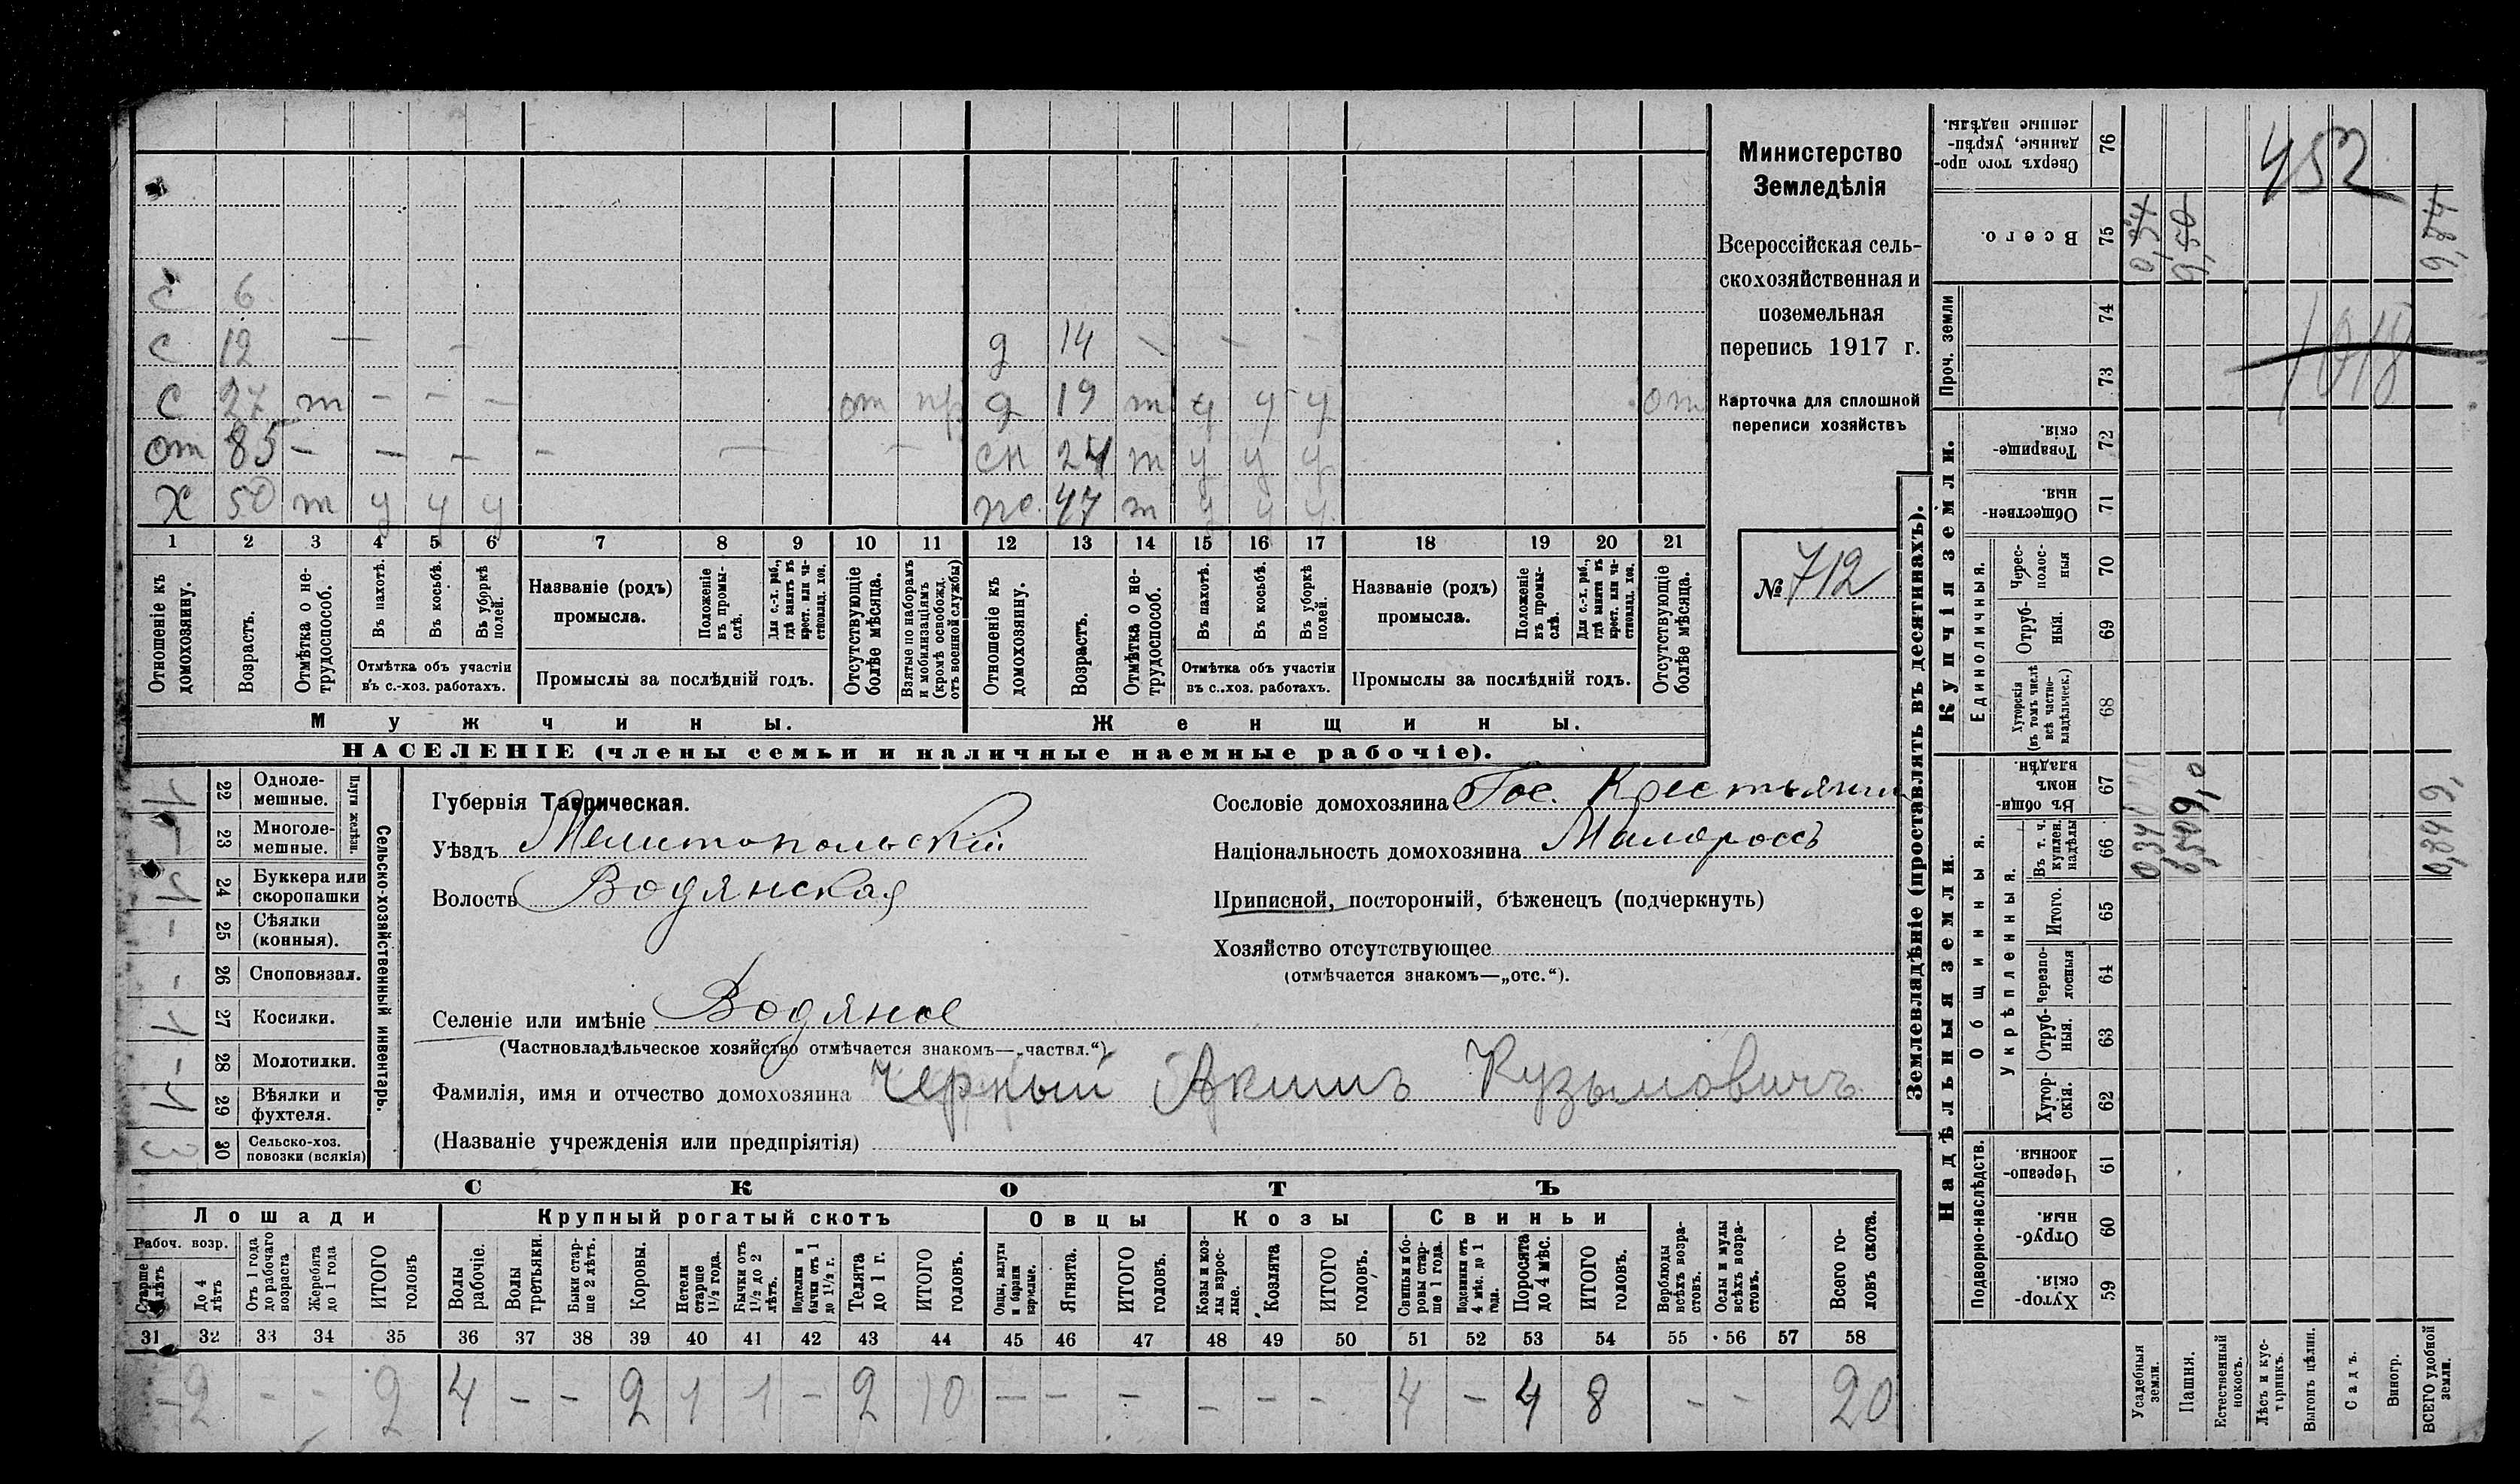 с 6
с 12 — — д 14 — — —
с 27 т — — — от пр д 19 т ч у у от
от 85 — — — — — — сн 24 т у у у
Х 50 т у у у же. 47 т у у у
1 2 3 4 5 6 7 8 9 10 11 12 13 14 15 16 17 18 19 20 21
Отношеніе къ домохозяину.
Возрастъ.
Отмѣтка о не-трудоспособ.
Въ пахотѣ.
Въ косьбѣ.
Въ уборкѣ полей.
Отмѣтка объ участіи въ с.-хоз. работахъ.
Названіе (родъ) промысла.
Положеніе въ промы-слѣ.
Для с.-х. раб., гдѣ занятъ въ крест. или ча-стновлад. хоз.
Промыслы за послѣдній годъ.
Отсутствующіе болѣе мѣсяца.
Взятые по наборамъ и мобилизаціямъ (кромѣ освобожд. отъ военной службы)
Отношеніе къ домохозяину.
Возрастъ.
Отмѣтка о не-трудоспособ.
Въ пахотѣ.
Въ косьбѣ.
Въ уборкѣ полей.
Отмѣтка объ участіи въ с.-хоз. работахъ.
Названіе (родъ) промысла.
Положеніе въ промы-слѣ.
Для с.-х. раб., гдѣ занятъ въ крест. или ча-стновлад. хоз.
Промыслы за послѣдній годъ.
Отсутствующіе болѣе мѣсяца.
Мужчины. Женщины.
НАСЕЛЕНІЕ (члены семьи и наличные наемные рабочіе).
Министерство
Земледѣлія
Всероссійская сель-
скохозяйственная и
поземельная
перепись 1917 г.
Карточка для сплошной
переписи хозяйствъ
№ 712
Сельско-хозяйственный инвентарь.
Плуги желѣзн.
1 22 Одноле-мешные.
23 Многоле-мешные.
1 24 Буккера или скоропашки
– 25 Сѣялки (конныя).
– 26 Сноповязал.
1 27 Косилки.
– 28 Молотилки.
1 29 Вѣялки и фухтеля.
3 30 Сельско-хоз. повозки (всякія)
Губернія Таврическая.
Уѣздъ Мелитопольскій
Волость Водянская
Селеніе или имѣніе Водяное
(Частновладѣльческое хозяйство отмѣчается знакомъ—„частвл.“)
Фамилія, имя и отчество домохозяина Черный Акимъ Кузьмовичъ
(Названіе учрежденія или предпріятія)
Сословіе домохозяина Гос. Крестьянин
Національность домохозяина Малороссъ
Приписной, посторонній, бѣженецъ (подчеркнуть)
Хозяйство отсутствующее
(отмѣчается знакомъ—„отс.“).
СКОТЪ
Лошади Крупный рогатый скотъ Овцы Козы Свиньи
Рабоч. возр.
Старше 4 лѣтъ
До 4 лѣтъ
Отъ 1 года до рабочаго возраста
Жеребята до 1 года
ИТОГО головъ
Волы рабочіе.
Волы третьяки.
Быки стар-ше 2 лѣтъ.
Коровы.
Нетели старше 1½ года.
Бычки отъ 1½ до 2 лѣтъ.
Подтелки и бычки отъ 1 до 1½ г.
Телята до 1 г.
ИТОГО головъ.
Овцы, валухи и бараны взрослые.
Ягнята.
ИТОГО головъ.
Козы и коз-лы взрос-лые.
Козлята
ИТОГО головъ.
Свиньи и бо-ровы стар-ше 1 года.
Подсвинки отъ 4 мѣс. до 1 года.
Поросята до 4 мѣс.
ИТОГО головъ.
Верблюды всѣхъ возра-стовъ.
Ослы и мулы всѣхъ возра-стовъ.
Всего го-ловъ скота.
31 32 33 34 35 36 37 38 39 40 41 42 43 44 45 46 47 48 49 50 51 52 53 54 55 56 57 58
– 2 – – 2 4 – – 2 1 1 – 2 10 – – – – – – 4 – 4 8 – – 20
Землевладѣніе (проставлять въ десятинахъ).
Купчія земли.
Надѣльныя земли.
Сверхъ того про-данные, укрѣп-ленные надѣлы. 76
Всего. 75 0,34 9,50 9,84
Проч. земли 74 73
Товарище-скія. 72
Обществен-ныя. 71
Единоличныя.
Черес-полос-ныя 70
Отруб-ныя. 69
Хуторскія (въ томъ числѣ всѣ частно-владѣльческ.) 68
Общинныя.
Въ общин-номъ владѣн. 67 9,0 9,
Укрѣпленныя.
Въ т. ч. куплен. надѣлы 66 0,34 0,50 0,84
Итого. 65
Черезпо-лосныя 64
Отруб-ныя. 63
Хутор-скія. 62
Подворно-наслѣдств.
Черезпо-лосныя 61
Отруб-ныя. 60
Хутор-скія. 59
Усадебныя земли.
Пашня.
Естественный покосъ.
Лѣсъ и кус-тарникъ.
Выгонъ цѣлин.
Садъ.
Виногр.
ВСЕГО удобной земли.
452
1018